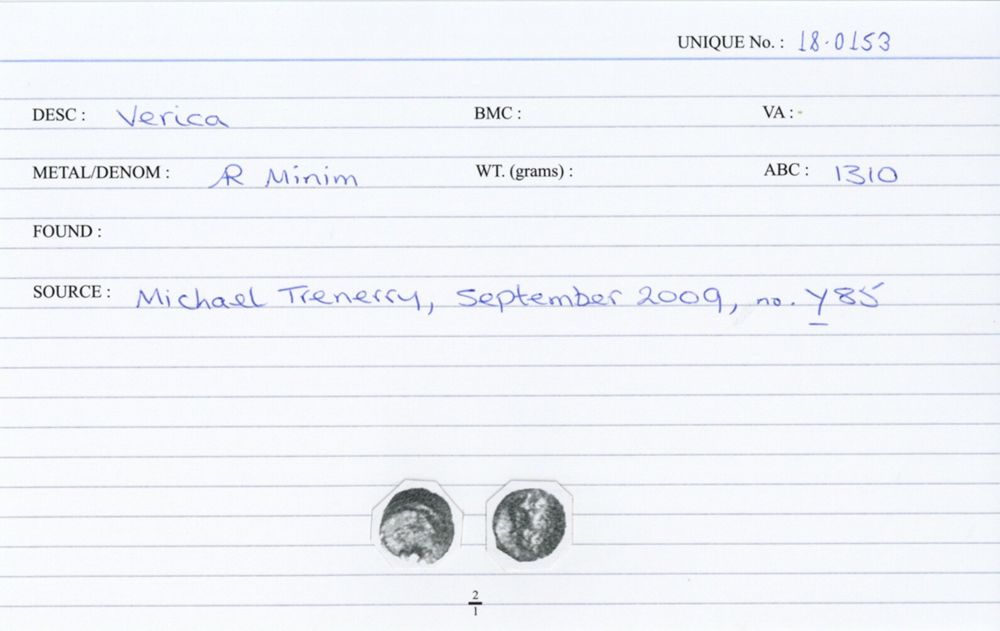 UNIQUE No. : 18.0153
DESC : Verica BMC : VA : -
METAL/DENOM : AR Minim WT. (grams) : ABC : 1310
FOUND :
SOURCE : Michael Trenerry, September 2009, no. Y85
2
1